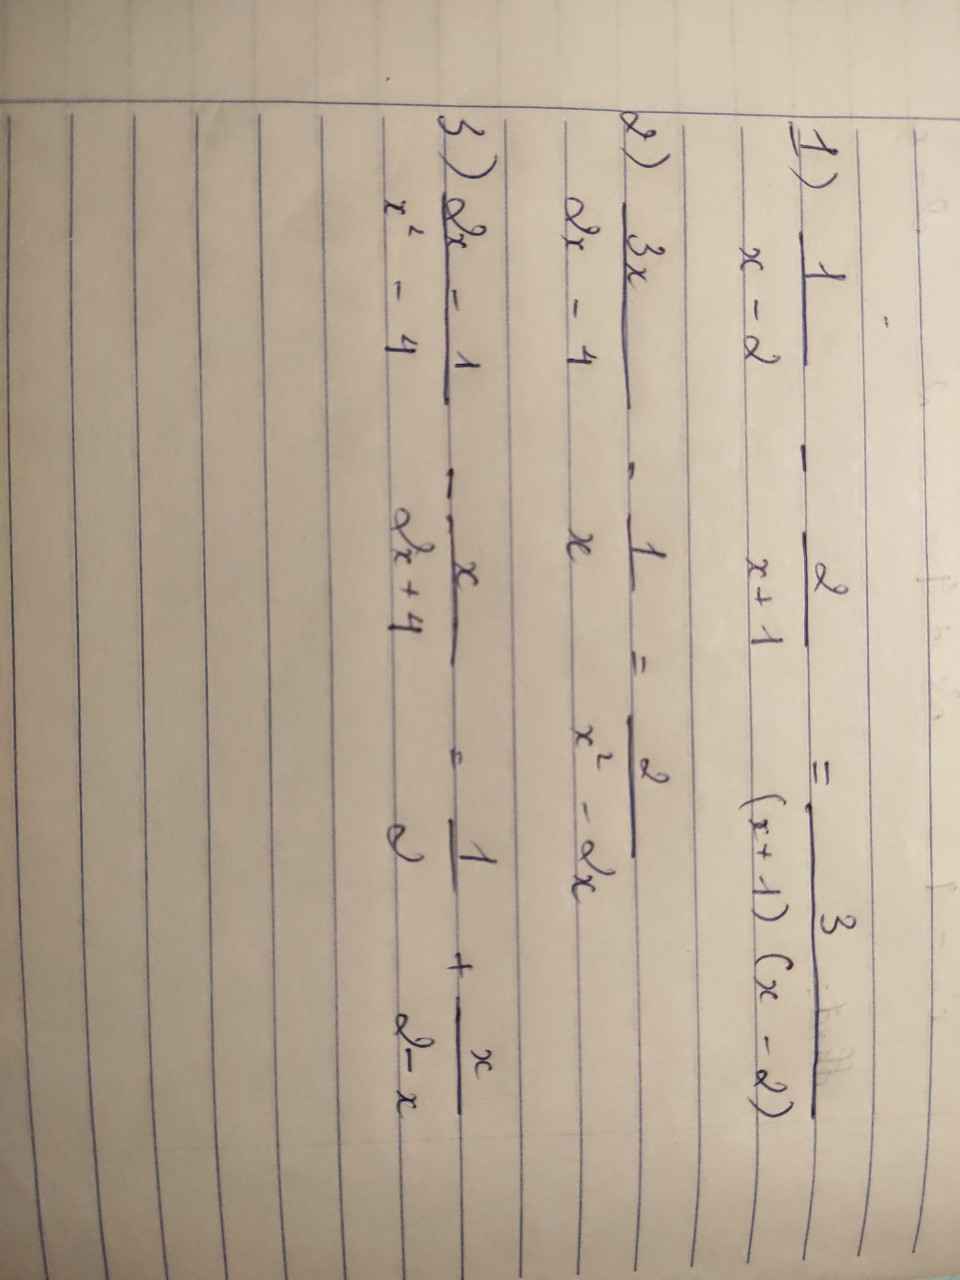 1) 1/(x - 2) - 2/(x + 1) = 3/((x + 1)(x - 2))
2) 3x/(2x - 4) - 1/x = 2/(x² - 2x)
3) (2x - 1)/(x² - 4) - x/(2x + 4) = 1/2 + x/(2 - x)